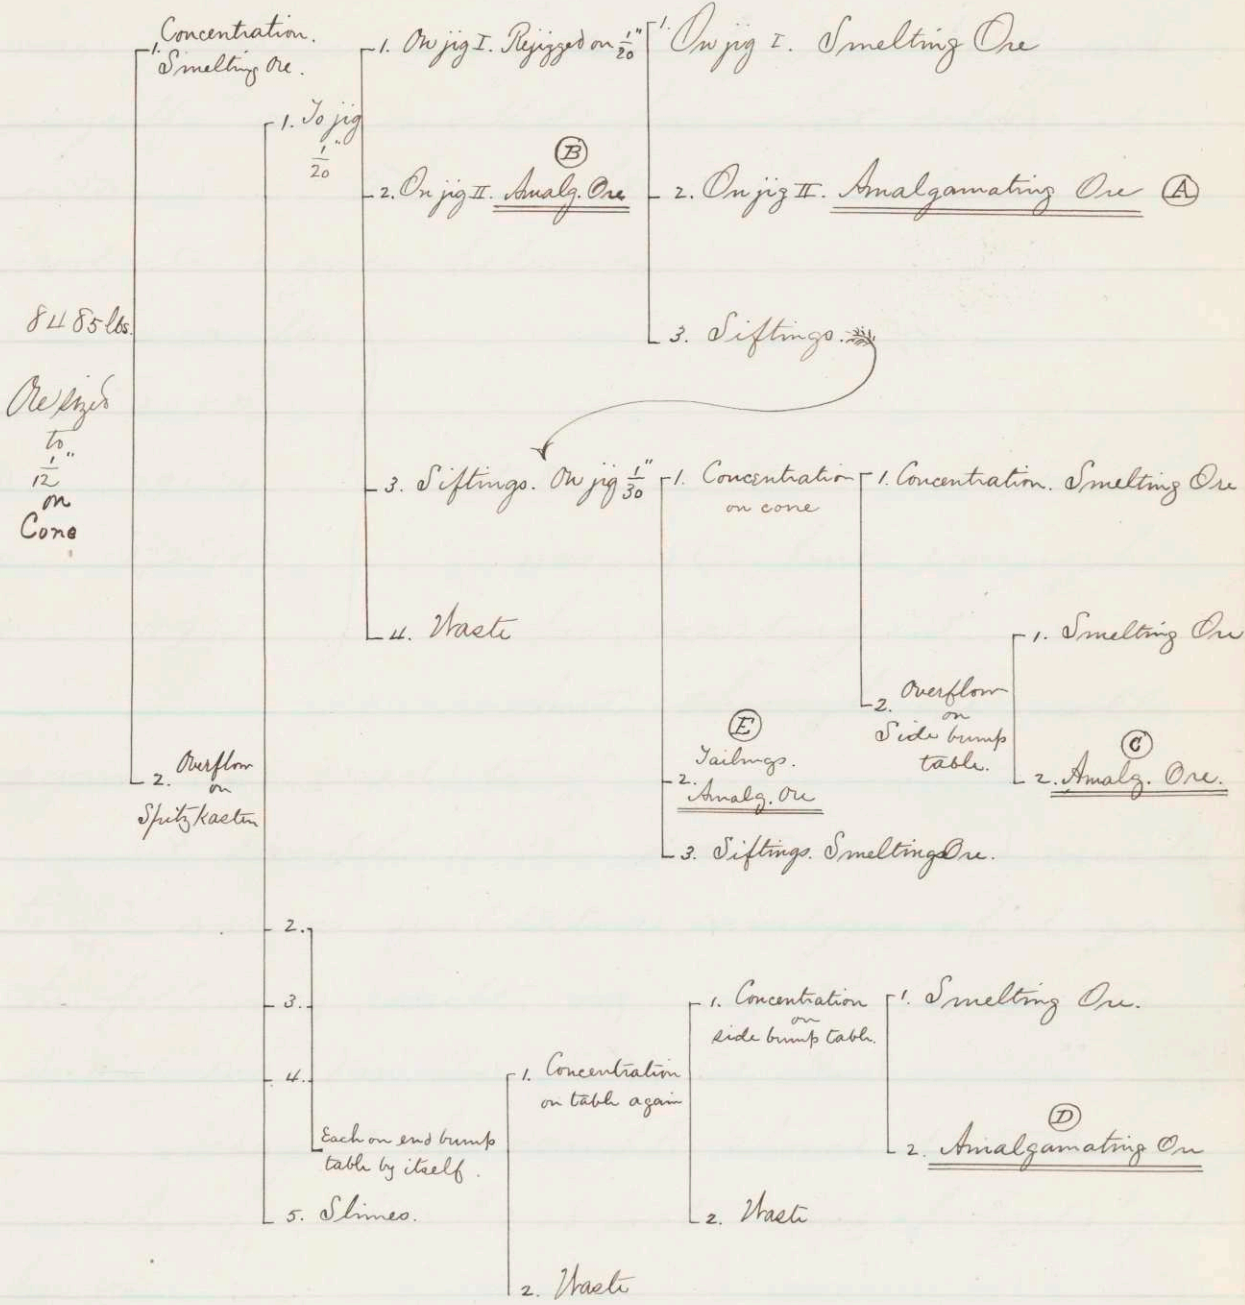 8485 lbs.
Ore sized
to
1/12"
on
Cone
1. Concentration.
Smelting Ore.
2. Overflow
on
Spitzkasten
1. To jig
1/20"
1. On jig I. Rejigged on 1/20"
1. On jig I. Smelting Ore
2. On jig II. Amalgamating Ore (A)
3. Siftings.
(B)
2. On jig II. Amalg. Ore
3. Siftings. On jig 1/30"
1. Concentration
on cone
1. Concentration. Smelting Ore
2. Overflow
on
Side bump
table.
1. Smelting Ore
(C)
2. Amalg. Ore.
(E)
2. Tailings.
Amalg. Ore
3. Siftings. Smelting Ore.
4. Waste
2.
3.
4.
Each on end bump
table by itself.
1. Concentration
on table again
1. Concentration
on
side bump table.
1. Smelting Ore.
(D)
2. Amalgamating Ore
2. Waste
2. Waste
5. Slimes.